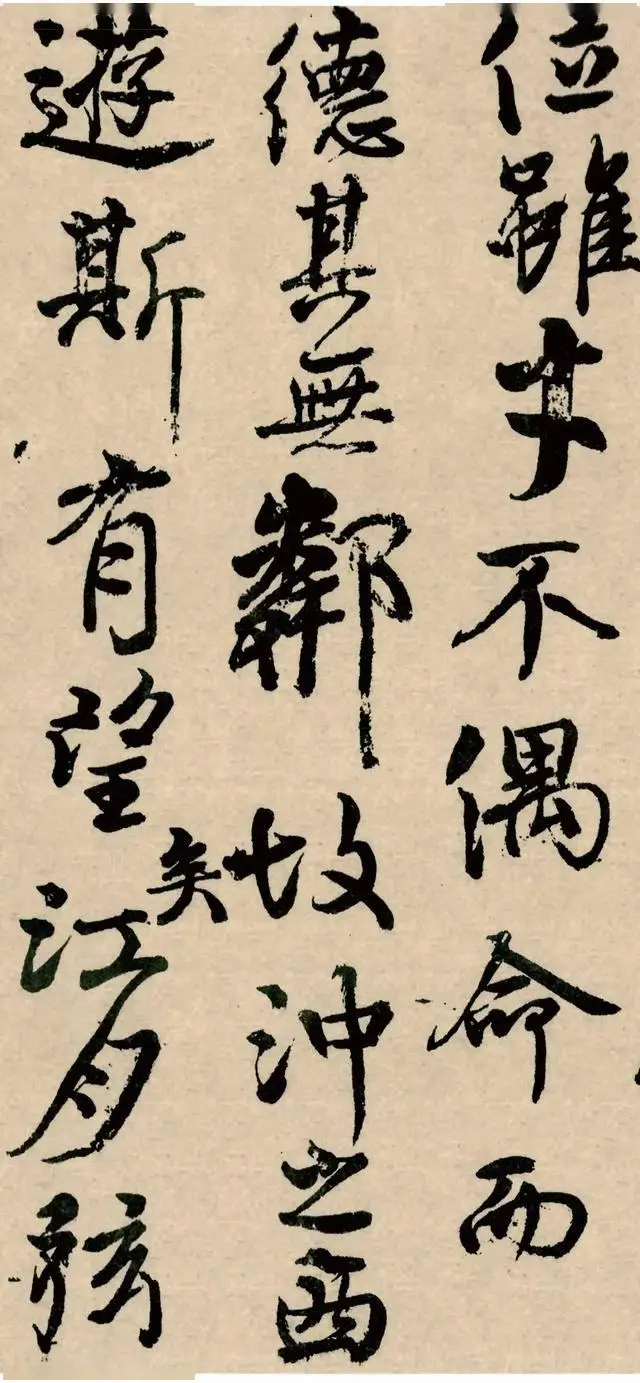 位雖才不偶命而
德其無鄰故沖之西
遊斯有望矣江月弦